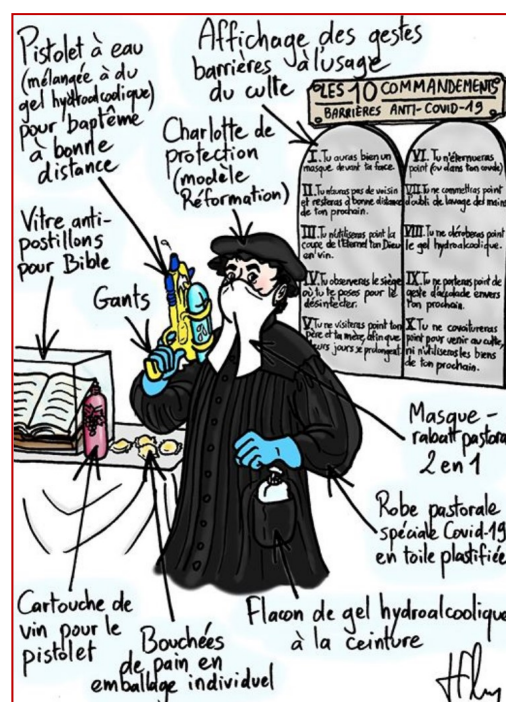 Pistolet à eau
(mélangée à du
gel hydroalcoolique)
pour baptême
à bonne
distance
Affichage des gestes
barrières à l'usage
du culte
Charlotte de
protection
(modèle
Réformation)
LES 10 COMMANDEMENTS
BARRIÈRES ANTI-COVID-19
I. Tu auras bien un
masque devant ta face.
II. Tu n'auras pas de voisin
et resteras à bonne distance
de ton prochain.
III. Tu n'utiliseras point la
coupe de l'Eternel ton Dieu
en vin.
IV. Tu observeras le siège
où tu te poses pour le
désinfecter.
V. Tu ne visiteras point ton
père et ta mère, afin que
leurs jours se prolongent.
VI. Tu n'éternueras
point (ou dans ton coude)
VII. Tu ne commettras point
d'oubli de lavage des mains
VIII. Tu ne déroberas point
le gel hydroalcoolique.
IX. Tu ne porteras point de
geste d'accolade envers
ton prochain.
X. Tu ne covoitureras
point pour venir au culte,
ni n'utiliseras les biens
de ton prochain.
Vitre anti-
postillons
pour Bible
Gants
Masque -
rabat pastoral
2 en 1
Robe pastorale
spéciale Covid-19
en toile plastifiée
Cartouche de
vin pour le
pistolet
Bouchées
de pain en
emballage individuel
Flacon de gel hydroalcoolique
à la ceinture